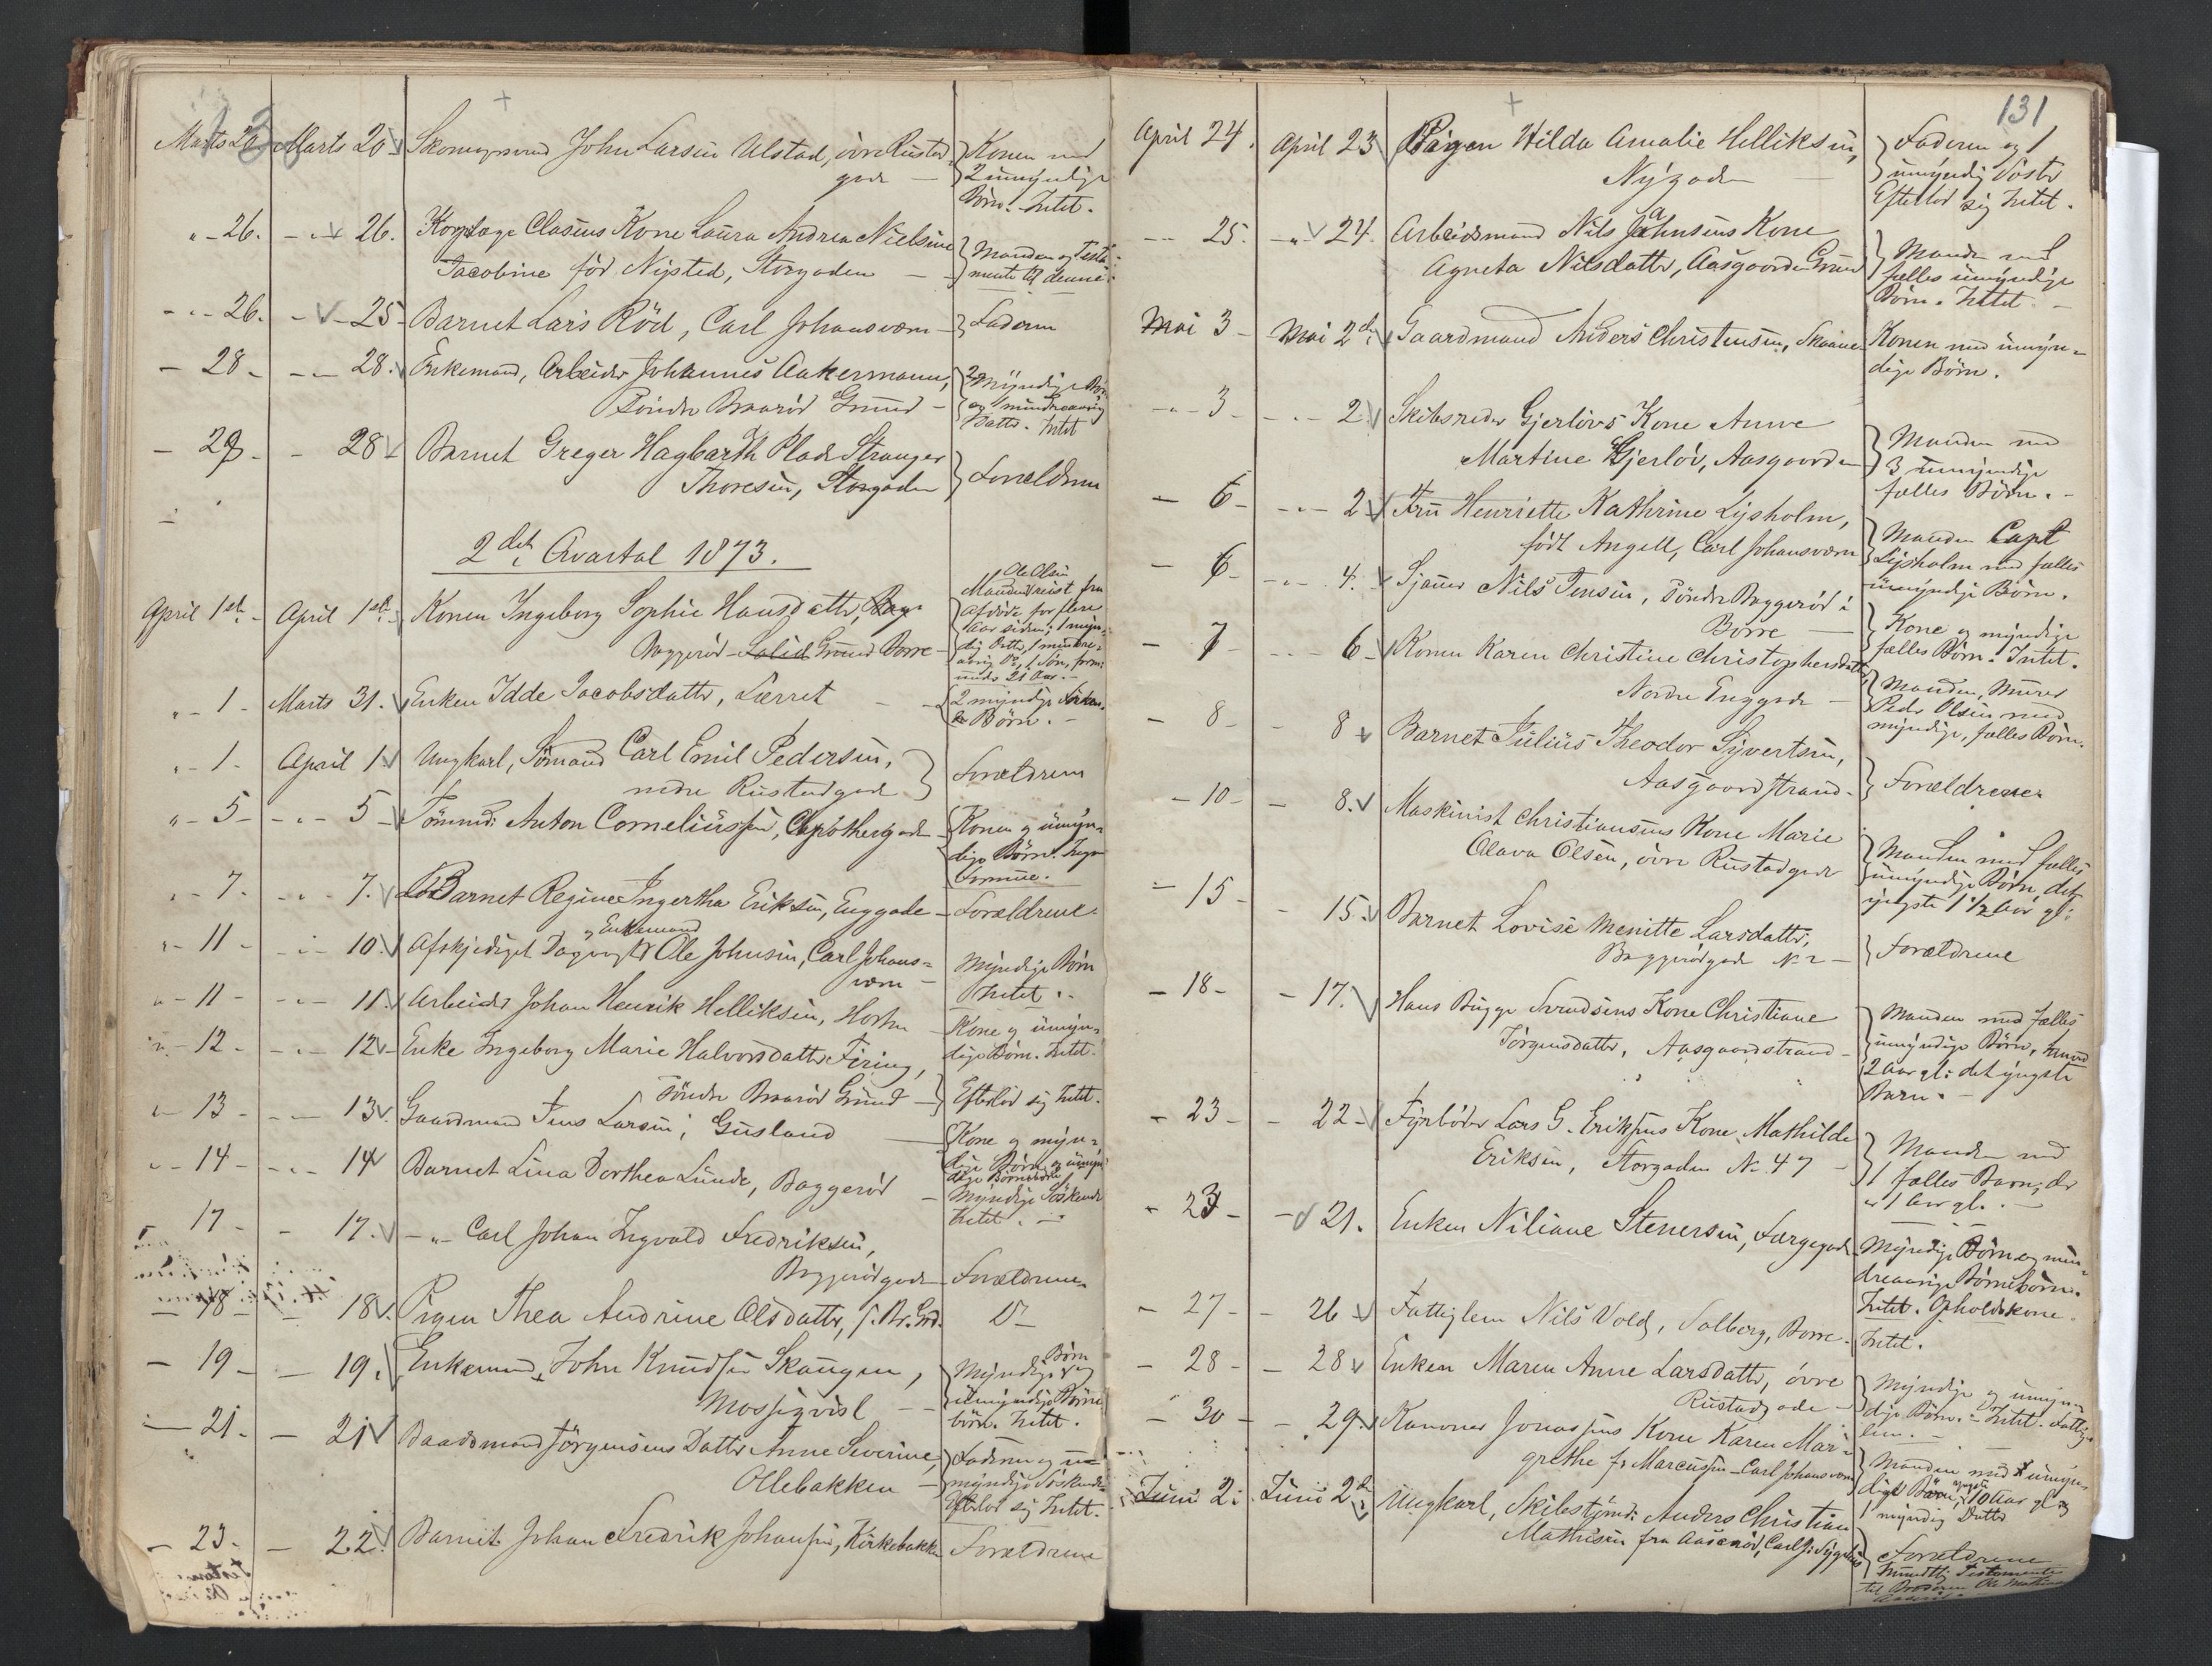 Marts 20 Marts 20 Skomagersvend John Larsen Ulstad, övre Rustad- Konen med
gade — 2 umyndige
Börn. Intet.
" - 26. - " - 26. Clasens Kone Laura Andrea Nielsine Manden og Testa-
Jacobine föd Nysted, Storgaden — mente til denne.
- " - 26. - 25 - Barnet Lars Röd, Carl Johansværn - Faderen
- 28 - - " - 28. Enkemand, Arbeider Johannes Aakermann, 2 Myndige Börn
Söndre Braaröd Grund - og 1 mindreaarig
Datter. Intet
- 29 - - 28 - Barnet Greger Hagbarth Plade Stranger
Thoresen, Storgaden Forældrene
2det Qvartal 1873.
Ole Olsen
April 1ste - April 1ste - Konen Ingeborg Sophie Hansdatter, Manden reist fra
afdöde for flere
Aar siden; 1 myn-
Baggeröd - Solid Grund Borre - dig Datter, 1 mindre-
aarig Do, 1 Sön,
under 21 Aar. -
" - 1 - Marts 31. Enken Idde Jacobsdatter, Lerret - - 2 myndige
Börn. -
" - 1 - April 1 Ungkarl, Sömand Carl Emil Pedersen, Forældrene
nedre Rustadgade
" - 5 - - " - 5 - Tömmd: Anton Corneliussen, Apothergade - Konen og umyn-
dige Börn. Ingen
Formue.
" - 7 - - " - 7. Barnet Regine Ingertha Eriksen, Enggade - Forældrene.
og Enkemand
" - 11 - - " - 10. Afskjediget Dagvogter Ole Johnsen, Carl Johans- Myndige Börn
værn - Intet. -
" - 11 - - " - 11. Arbeider Johan Henrik Helliksen, Horten - Kone og umyn-
dige Börn. Intet.
" - 12 - - " - 12 - Enke Ingeborg Marie Halvorsdatter Firing,
Söndre Braaröd Grund - Efterlod sig Intet.
" - 13 - - " - 13. Gaardmand Jens Larsen, Gusland — Kone og myn-
dige Börn og umyn-
dige Börnebörn
" - 14 - - " - 14 Barnet Lina Dorthea Lunde, Baggeröd - Myndige Söskende
Intet. -
- 17 - - 17. - " - Carl Johan Ingvald Fredriksen,
Baggerödgade - Forældrene
- 18 - - 18. Pigen Thea Andrine Olsdatter, S. Br. Grd. Do -
- 19 - - 19. Enkemand, John Knudsen Skaugen, Myndige Börn og
Mossigvisl - - umyndige Börne-
börn. Intet.
- 21. - 21 Baadsmand Jörgensens Datter Anne Severine, Faderen og u-
Ollebakken - myndige Söskende
Efterlod sig Intet.
- 23 - - 22. Barnet Johan Fredrik Johansen, Kirkebakken Forældrene
131
April 24. April 23 Pigen Hilda Amalie Helliksen, Faderen og 1
Nygaden — umyndig Söster
Efterlod sig Intet.
- " - 25. - " - 24. Arbeidsmand Nils Jahnsens Kone
Agneta Nilsdatter, Aasgaarden Grund Manden med
fælles umyndige
Börn. Intet. -
Mai 3 - Mai 2den Gaardmand Anders Christensen, Skaane Konen med umyn-
dige Börn.
- " - 3 - - " - 2. Skibsreder Gjerlövs Kone Anne
Martine Gjerlöv, Aasgaarden Manden med
3 umyndige
fælles Börn. -
- 6 - - " - 2. Fru Henriette Kathrine Lysholm,
födt Angell, Carl Johansværn Manden Capt
Lysholm med fælles
umyndige Börn.
- 6 - - " - 4. Sjauer Nils Jensen, Söndre Baggeröd i
Borre — Kone og myndige
fælles Börn. Intet.
- 7 - - " - 6 - Konen Karen Christine Christophersdatter,
Nordre Enggade - Manden, Murer
Peder Olsen med
myndige, fælles Börn.
- 8 - - 8 Barnet Julius Theodor Syvertsen,
Aasgaardstrand - Forældrene
- 10 - - 8. Maskinist Christiansens Kone Marie
Olava Olsen, övre Rustadgade Manden med fælles
umyndige Börn, det
yngste 1 1/2 Aar gl:
- 15 - - 15. Barnet Lovise Menitte Larsdatter,
Baggerödgade No 2 - Forældrene
- 18 - - 17. Hans Bugge Svendsens Kone Christiane
Jörgensdatter, Aasgaardstrand - Manden med fælles
umyndige Börn,
2 Aar gl: det yngste
Barn. -
- 23 - - 22 - Fyrböder Lars G. Eriksens Kone Mathilde
Eriksen, Storgaden No 47 - Manden med
1 fælles Barn, der
er 1 Aar gl. -
- 23 - - 21. Enken Niliane Stenersen, Færgegade Myndige Börn og min-
dreaarige Börnebörn.
Intet. Opholdskone.
- 27 - - 26 Fattiglem Nils Vold, Solberg, Borre - Intet.
- 28 - - 28 Enken Maren Anne Larsdatter, övre
Rustadgade - Myndige og umyn-
dige Börn. - Intet. Fattig-
lem. -
- 30 - - 29. Kanoner Jonassens Kone Karen Mar-
grethe f. Marcussen - Carl Johansværn Manden med umyn-
dige Börn, yngste 10 Aar gl og
1 myndig Datter
Juni 2. Juni 2den Ungkarl, Skibstömd: Anders Christian
Mathisen fra Aaseröd, Carl J: Sygehus Forældrene
Mundtlig Testamente
til Broderen Ole Mathisen